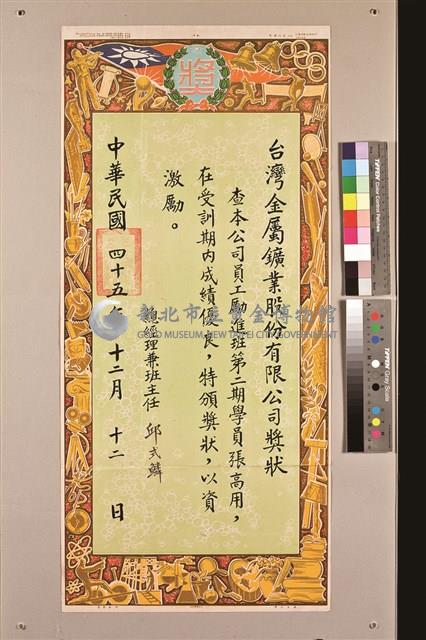 獎
台灣金屬鑛業股份有限公司獎狀
查本公司員工勵進班第二期學員張高用，
在受訓期內成績優良，特頒獎狀，以資
激勵。
總經理兼班主任 邱式麟
中華民國 四十五年 十二月 十二 日
新北市立黃金博物館
GOLD MUSEUM, NEW TAIPEI CITY GOVERNMENT
TIFFEN Color Control Patches
TIFFEN Gray Scale